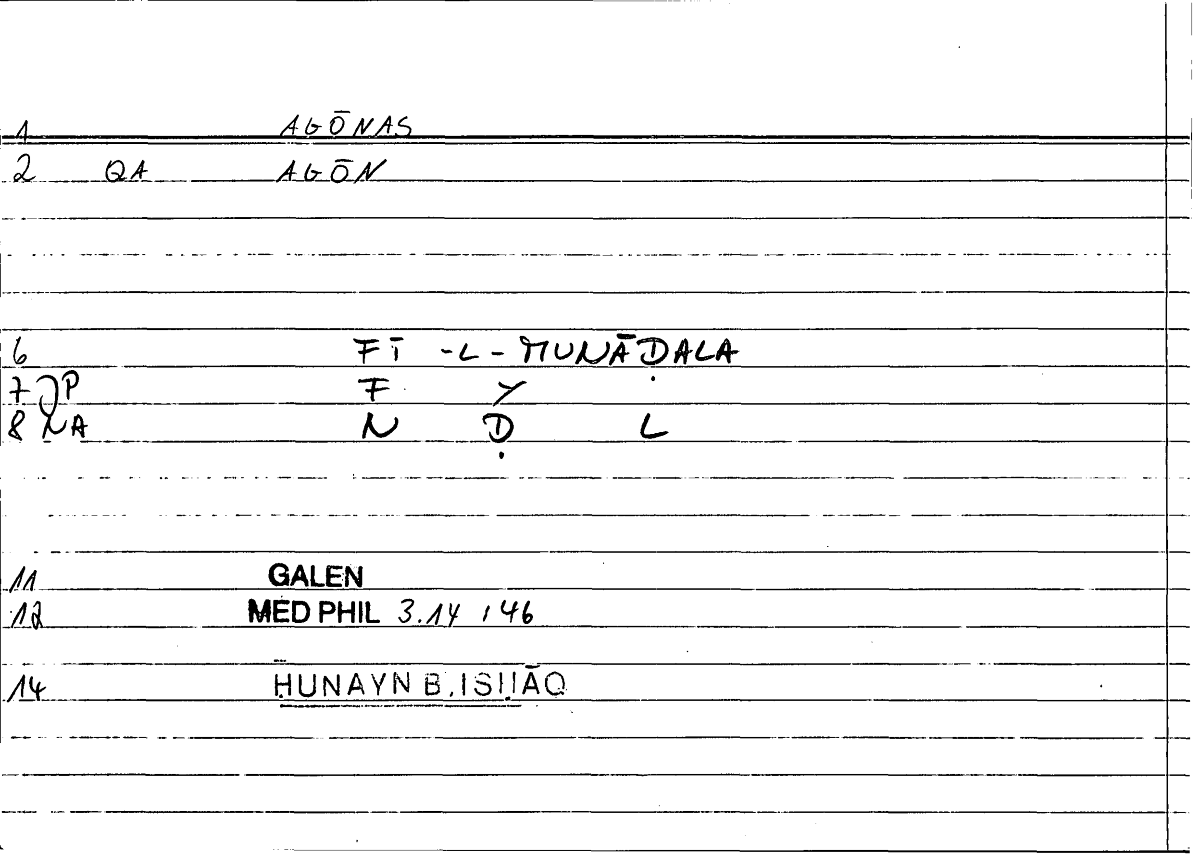 1 AGŌNAS
2 QA AGŌN
6 FĪ -L- MUNĀḌALA
7 JP F Y
8 NA N Ḍ L
11 GALEN
12 MED PHIL 3.14 , 46
14 ḤUNAYN B. ISḤĀQ